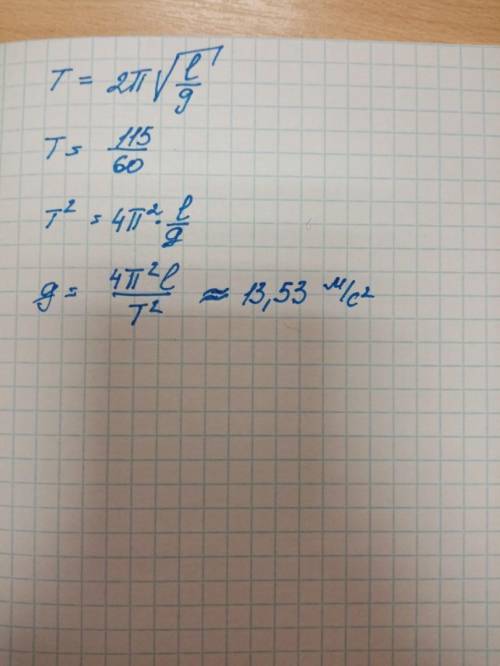 T = 2π√(l/g)
T = 115/60
T² = 4π² · l/g
g = 4π²l/T² ≈ 13,53 м/с²